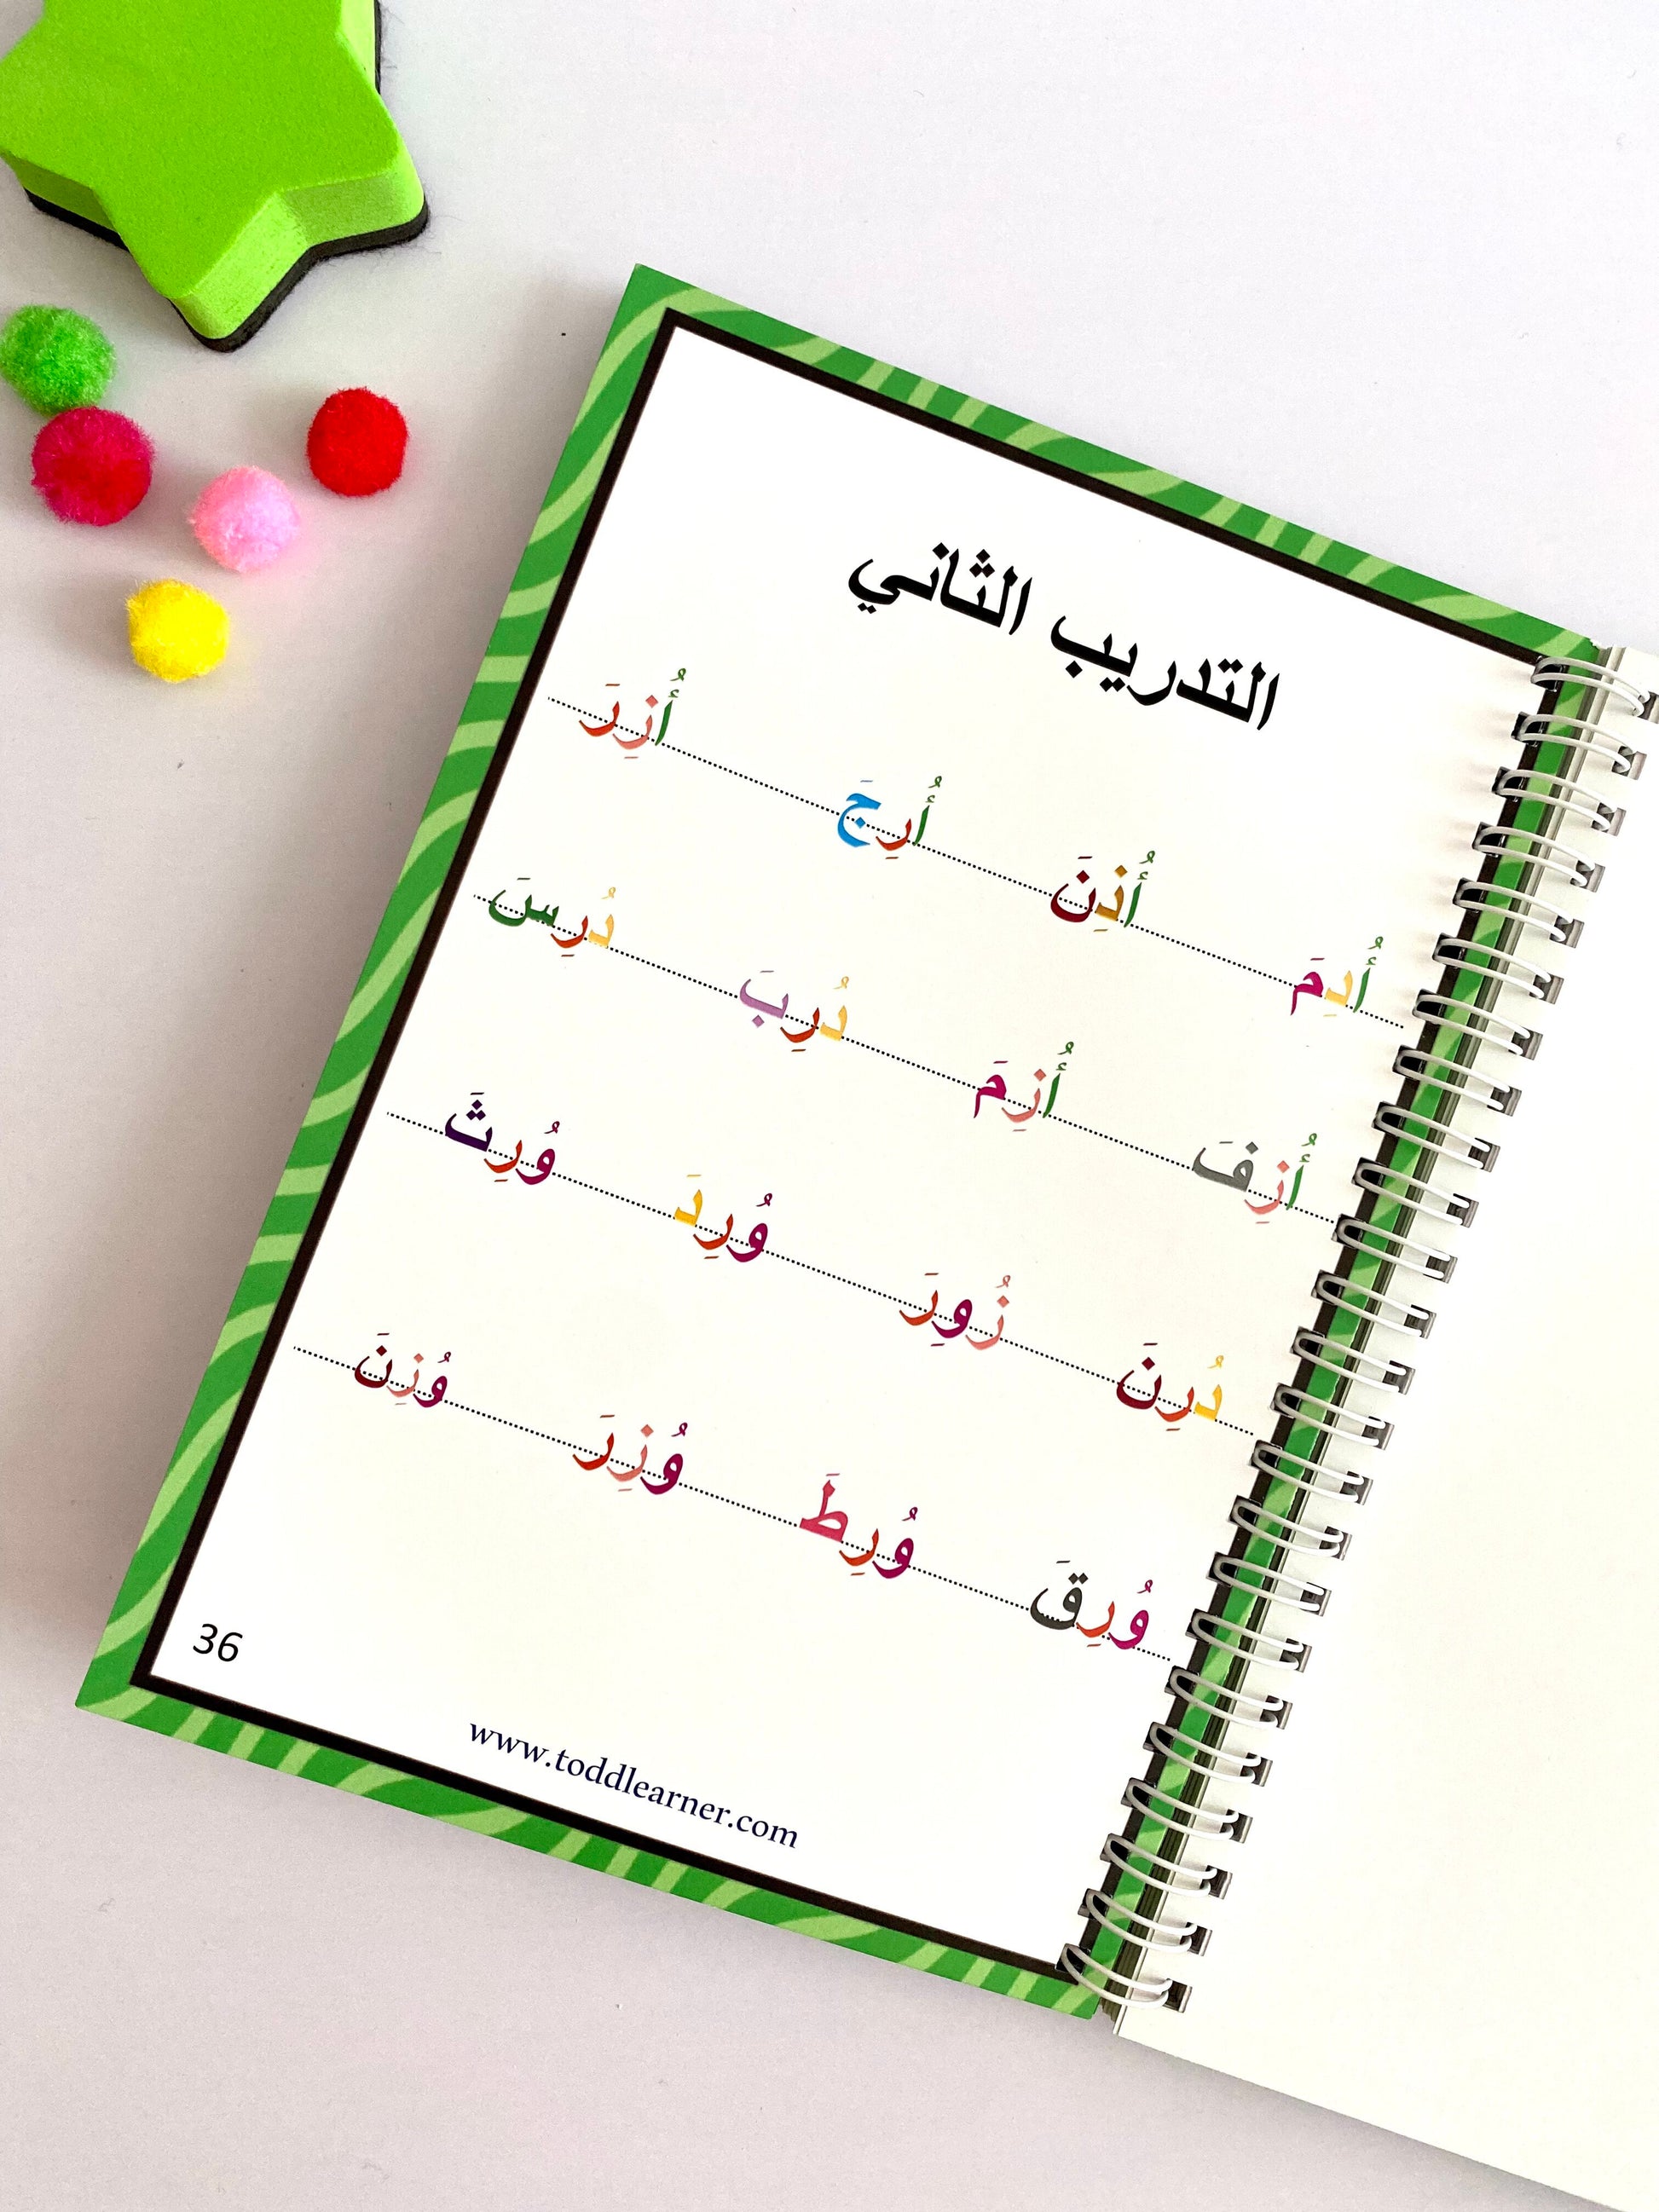 التدريب الثاني
أُدِمَ أُذِنَ أُرِجَ أُزِرَ
أُزِفَ أُزِمَ دُرِبَ دُرِسَ
دُرِنَ زُوِرَ وُرِدَ وُرِثَ
وُرِقَ وُرِطَ وُزِرَ وُزِنَ
36
www.toddlearner.com